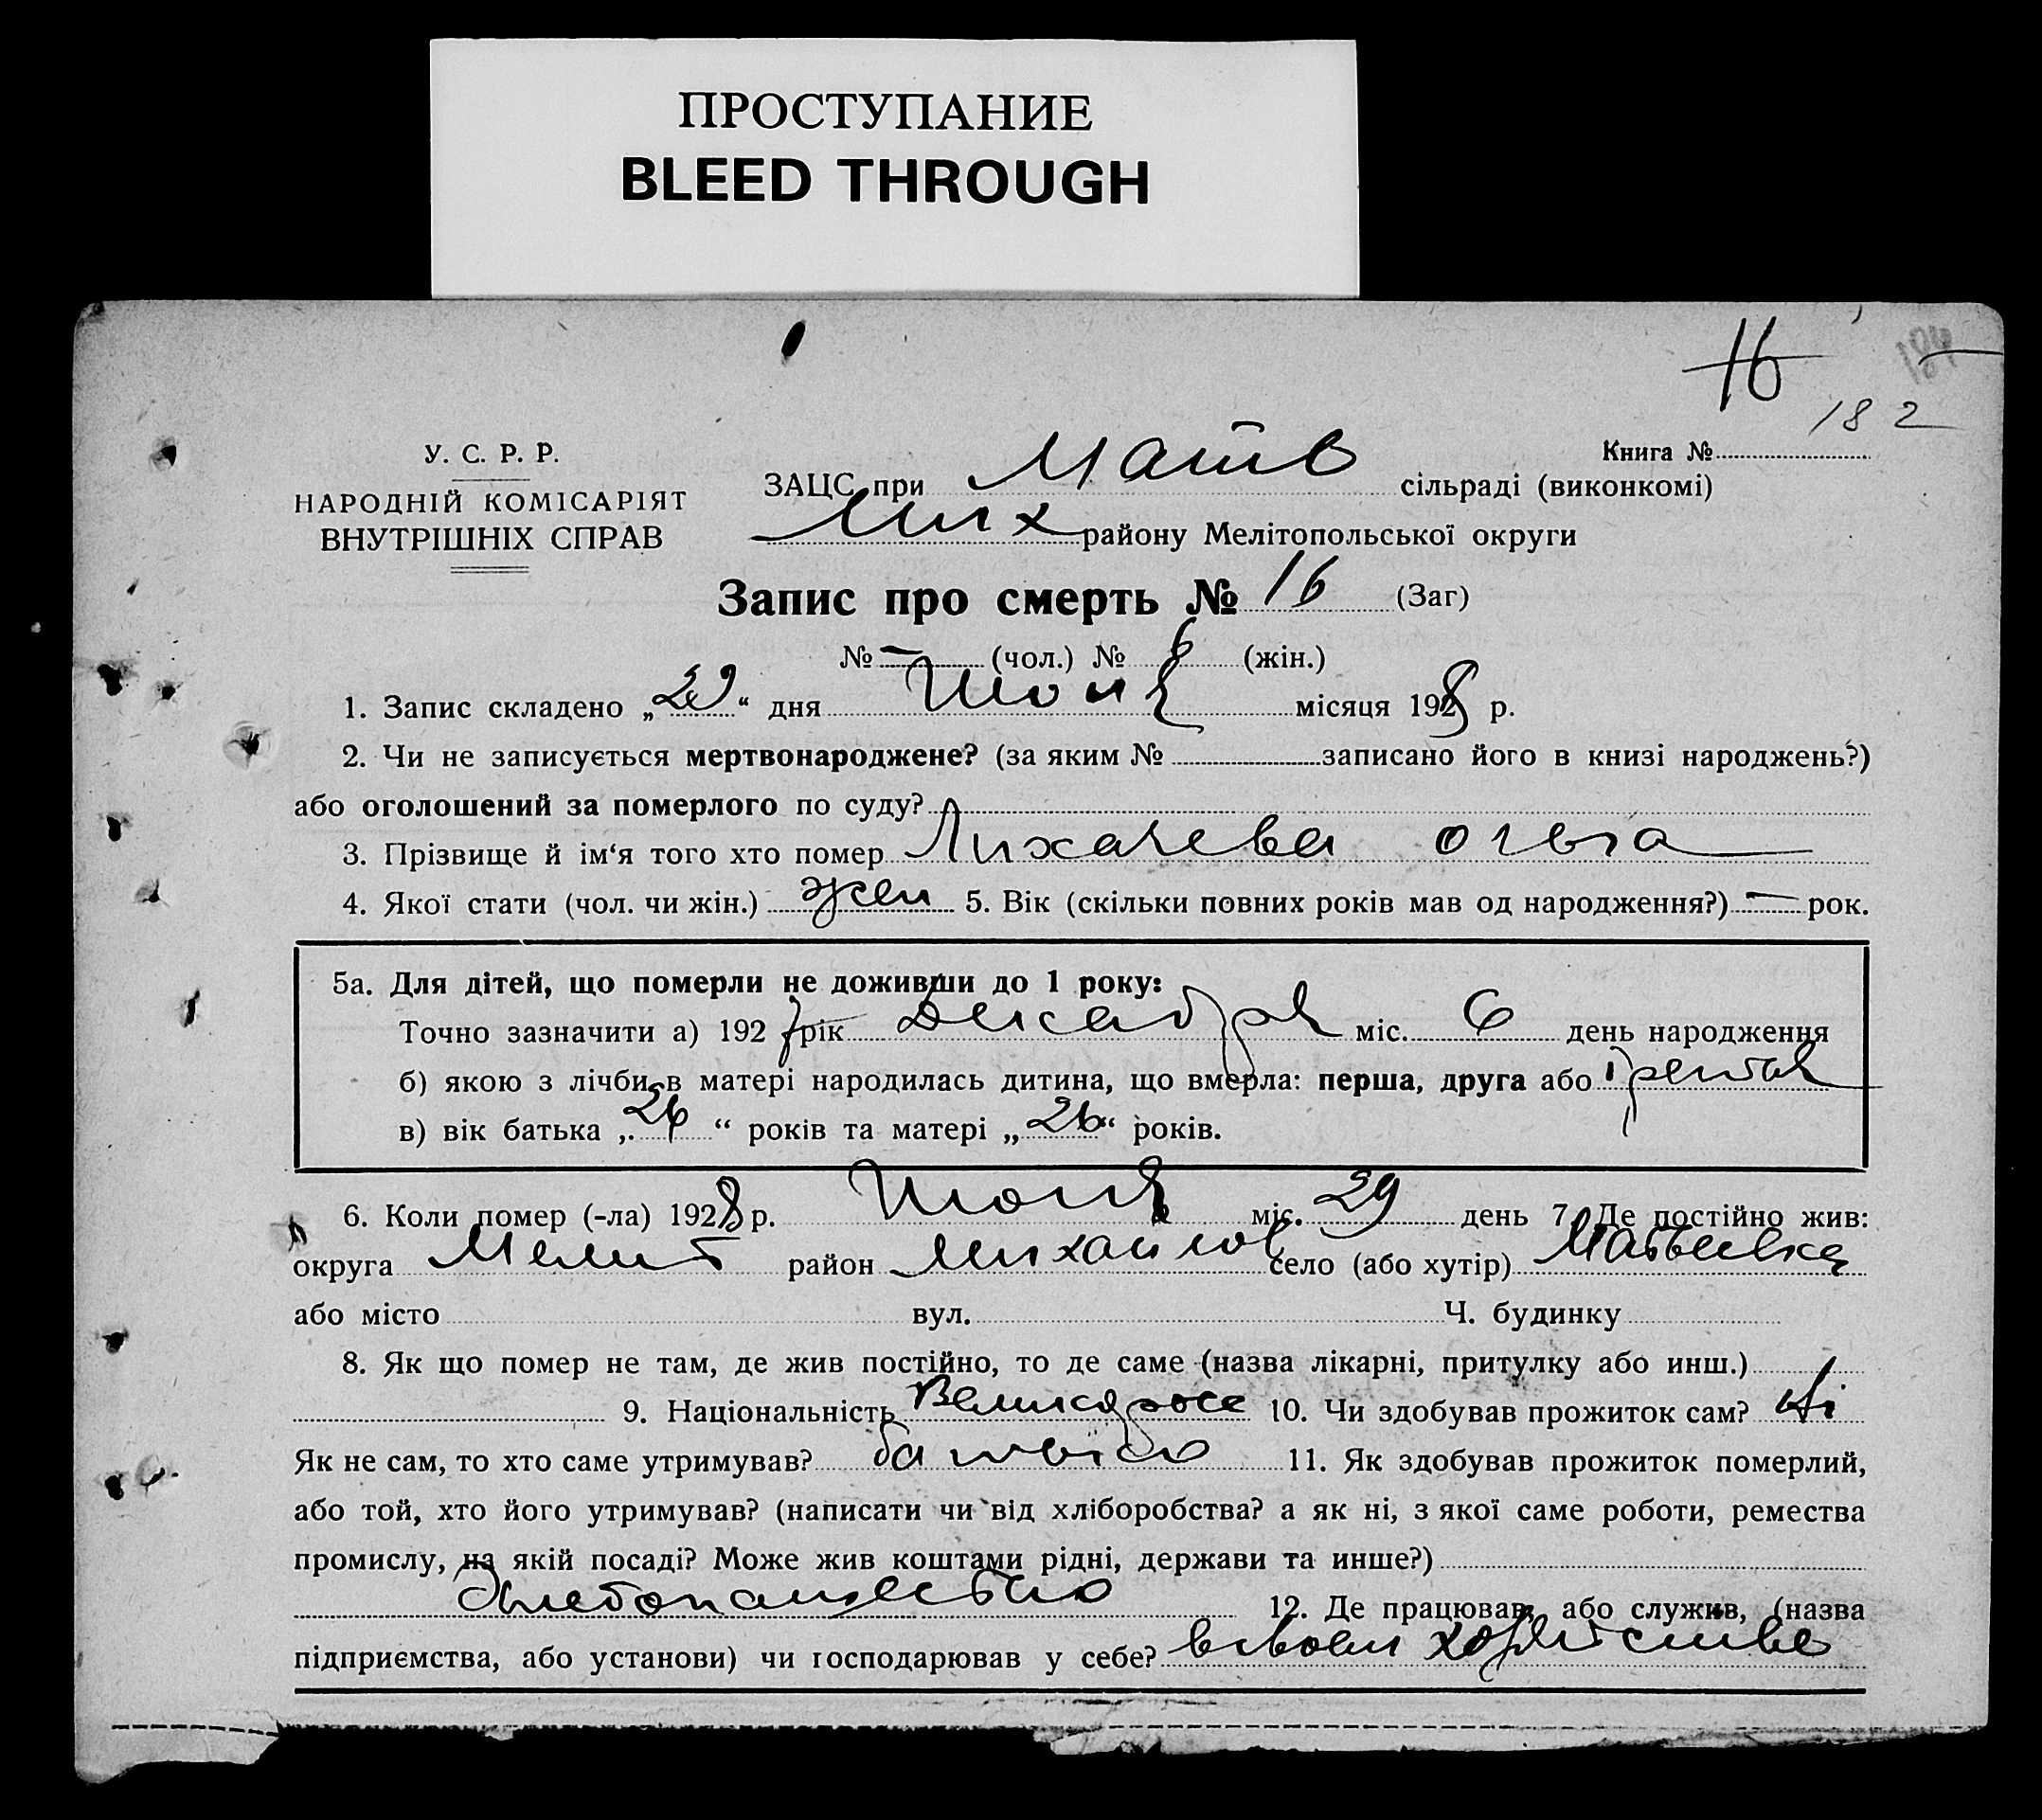 ПРОСТУПАНИЕ
BLEED THROUGH
16
182
У. С. Р. Р.
НАРОДНІЙ КОМІСАРІЯТ
ВНУТРІШНІХ СПРАВ
Книга №
ЗАЦС при Матв сільраді (виконкомі)
Мих району Мелітопольської округи
Запис про смерть № 16 (Заг)
№ — (чол.) № 6 (жін.)
1. Запис складено „29“ дня Июня місяця 1928 р.
2. Чи не записується мертвонароджене? (за яким № записано його в книзі народжень?)
або оголошений за померлого по суду?
3. Прізвище й ім‘я того хто помер Лихачева Ольга
4. Якої стати (чол. чи жін.) жен 5. Вік (скільки повних років мав од народження?) — рок.
5а. Для дітей, що померли не доживши до 1 року:
Точно зазначити а) 1927 рік Декабря міс. 6 день народження
б) якою з лічби в матері народилась дитина, що вмерла: перша, друга або третья
в) вік батька „26“ років та матері „26“ років.
6. Коли помер (-ла) 1928 р. Июня міс. 29 день 7. Де постійно жив:
округа Мелит район Михайлов село (або хутір) Матвеевка
або місто вул. Ч. будинку
8. Як що помер не там, де жив постійно, то де саме (назва лікарні, притулку або инш.)
9. Національність Великоросс 10. Чи здобував прожиток сам? ні
Як не сам, то хто саме утримував? батько 11. Як здобував прожиток померлий,
або той, хто його утримував? (написати чи від хліборобства? а як ні, з якої саме роботи, ремества
промислу, на якій посаді? Може жив коштами рідні, держави та инше?)
хлебопашество 12. Де працював, або служив, (назва
підприємства, або установи) чи господарював у себе? в своем хозяйстве